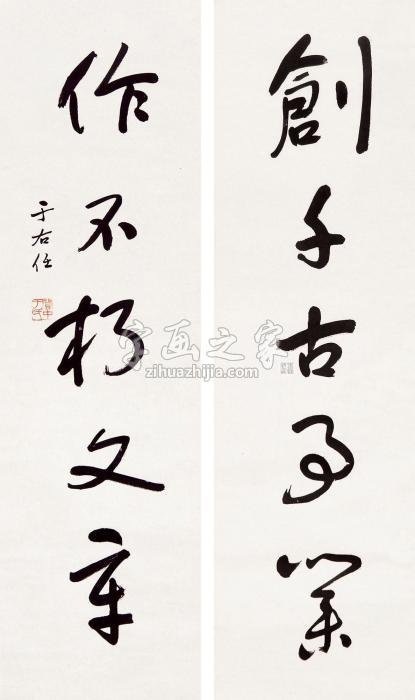 創千古事業
作不朽文章
于右任
字画之家
zihuazhijia.com